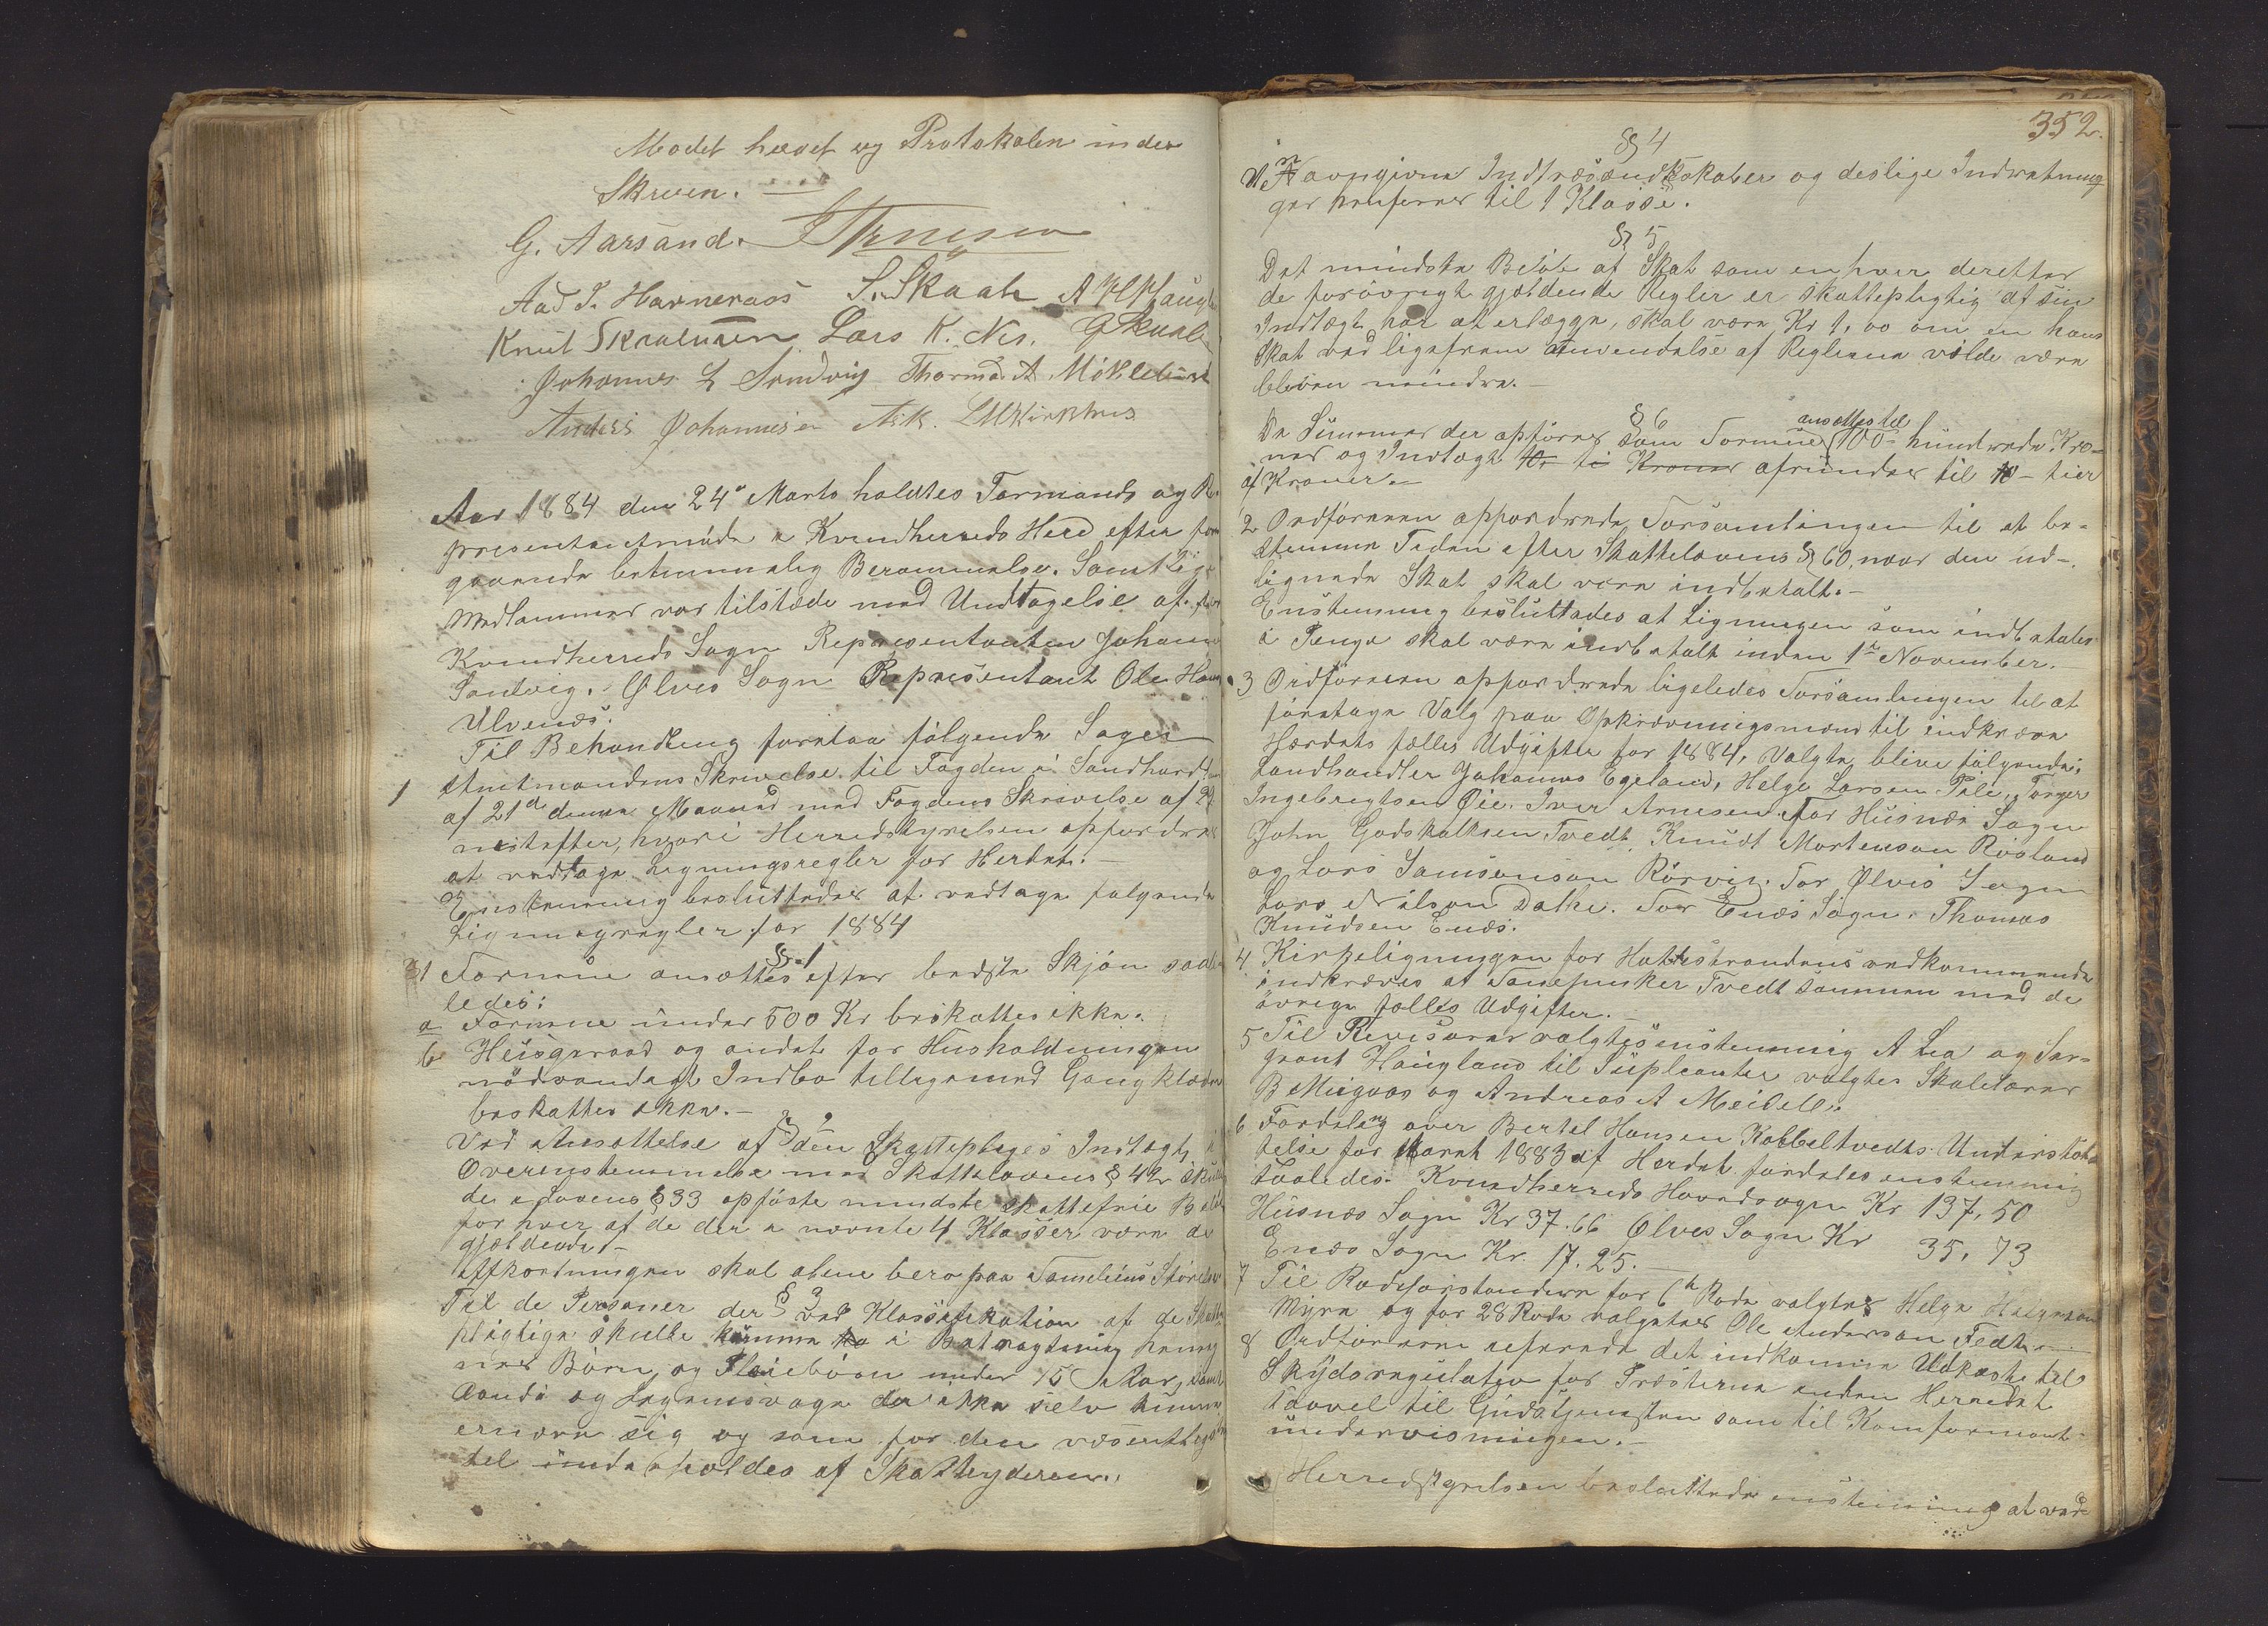 Mødet hævet og Protokolen under
Skreven. —
G. Aarsand.
Aad T. Havneraas S. Skaale A H Haugl
Knut Skaaluren Lars K. Nes. G Skaale
Johannes L Sandvig Thormo A. Møklebust
Anders Johannesen Ask.
Aar 1884 den 24de Marts holdtes Formands og Re
presentantmøde i Kvindherreds Hered efter for
gaaende betimmelig Berammelse. Samtlige
Medlammer var tilstæde med Undtagelse af for
Kvindherreds Sogn Representanten Johannes
Sandvig. Ølves Sogn Representant Ole Hans
Ulvenæs.
Til Behandling foretaa følgende Sager
1 Amtmandens Skrivelse til Fogden i Søndhordl
af 21de denne Maaned med Fogdens Skrivelse af 2
nestefter, hvori Herredstyrelsen opfordres
at vedtage Ligningsregler for Herdet. —
Enstemmig besluttedes at vedtage følgende
Ligningregler for 1884
§ 1
Formue ansættes efter bedste Skjøn saale
ledes:
a Formue under 500 Kr beskattes ikke.
b Husgeraad og andet for Husholdningen
nødvendigt Indbo tilligemed Gangklæder
beskattes ikke. —
§ 2
Ved Ansættelse af den Skattepligtiges Indtægt i
Overenstemmelse med Skattelovens § 42 skulle
de i Lovens § 33 opførte mindste skattefrie Beløb
for hver af de der i nævnte 4 Klasser være de
gjældende. —
Affkortningen skal alene bero paa Familiens Størelse
§ 3
Til de Personer der ved Klassifikation af de Skatte
pligtige skulle komme i Betragtning henreg
nes Børn og Pleiebørn under 15 Aar, samt
Aands og Legemsvage der ikke selv kunne
ernære sig og som for den væsentligste
del underholdes af Skatteyderen.
352.
§ 4
Unavngivne Indtræsendskaber og deslige Indretning
ger henføres til 1 Klasse.
§ 5
Det mindste Beløb af Skat som enhver derefter
de forøvrigt gjældende Regler er skattepligtig af sin
Indtægt har at erlægge, skal være Kr 1,00 om en hans
Skat ved ligefrem anvendelse af Reglerne vilde være
bleven mindre. —
§ 6
De Summer der opføres som Formue ansættes til 100 hundrede Kro-
ner og Indtægt 10. ti Kroner afrundes til 10 - tier
af Kroner. —
2 Ordføreren oppfordrede Forsamlingen til at be-
stemme Tiden efter Skattelovens § 60, naar den ud-
lignede Skat skal være indbetalt. —
Enstemmig besluttedes at Ligningen som indbetales
i Penge skal være indbetalt inden 1te November.
3 Ordføreren oppfordrede ligeledes Forsamlingen til at
foretage Valg paa Opkrævningsmænd til indkræve
Herdets fælles Udgifter for 1884. Valgte bleve følgende:
Landhandler Johannes Egeland, Helge Larsen Pile, Torger
Ingebregtsen Øie. Iver Arnesen. For Husnes Sogn
John Godskalksen Tvedt, Knudt Mortenson Røsland
og Lars Samsonson Rørvig. For Ølves Sogn
Lars Nilson Dalke. For Enæs Sogn. Thomas
Knudsen Enæs.
4 Kirkeligningen for Hattestrandens vedkommende
indkræves af Lanepusker Tvedt sammen med de
øvrige fælles Udgifter. —
5 Til Revisorer valgtes enstemmig A Lea og Ser-
geant Haugland til Supleanter valgtes Skolelærer
B Miegaas og Andreas A Meidell.
6 Fordeling over Bertel Hansen Kabbeltvedts Understøt
telse for Aaret 1883 af Herdet fordeles enstemmig
saaledes. Kvindherreds Hovedsogn Kr 137,50
Husnæs Sogn Kr 37.66 Ølves Sogn Kr 35,73
Enæs Sogn Kr. 17.25. —
7 Til Rodeforstandere for 6te Rode valgtes Helge Helgeson
Myra og for 28 Rode valgetes Ole Anderson Fedt. —
8 Ordføreren refererede det indkomne Udkast til
Skydsregulativ for Præsterne inden Herredet
saavel til Gudstjenesten som til Komfirmant-
undervisningen. —
Herredstyrelsen besluttede enstemmig at ved-